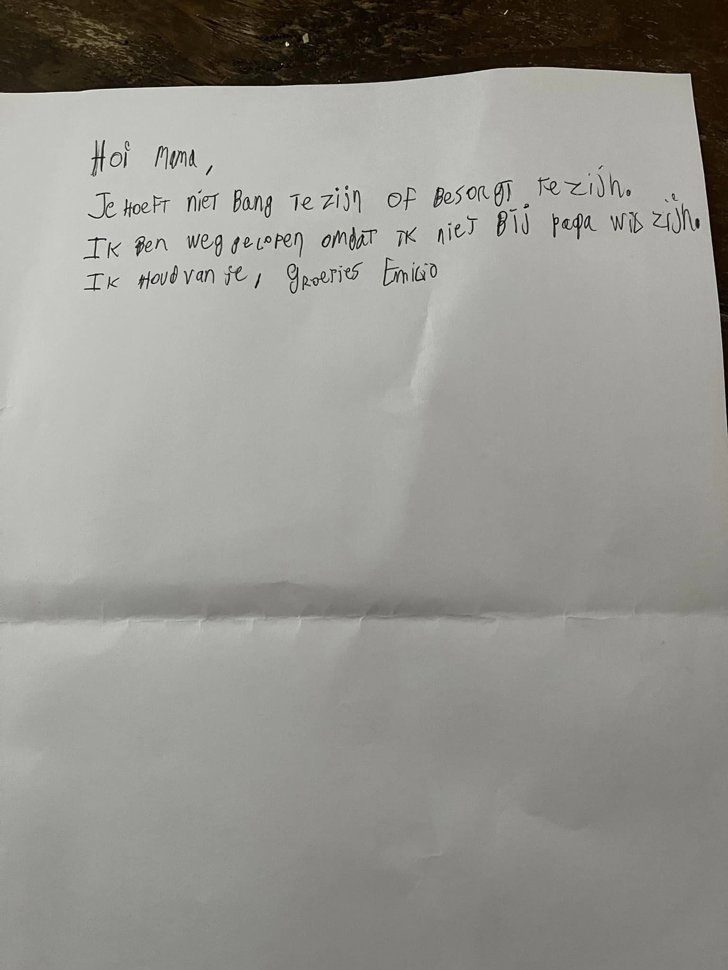 Hoi Mama,
Je hoeft niet bang te zijn of besorgt te zijn.
Ik ben weggelopen omdat ik niet bij papa wil zijn.
Ik houd van je, groetjes Emilio